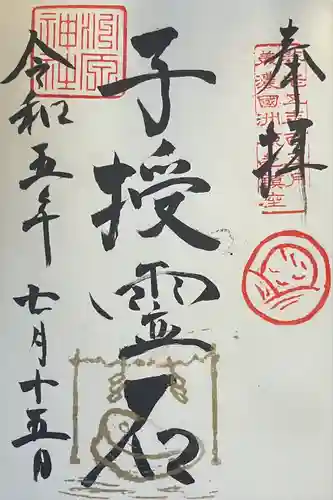 奉拝
子授霊石
令和五年 七月十五日
洲原
神社